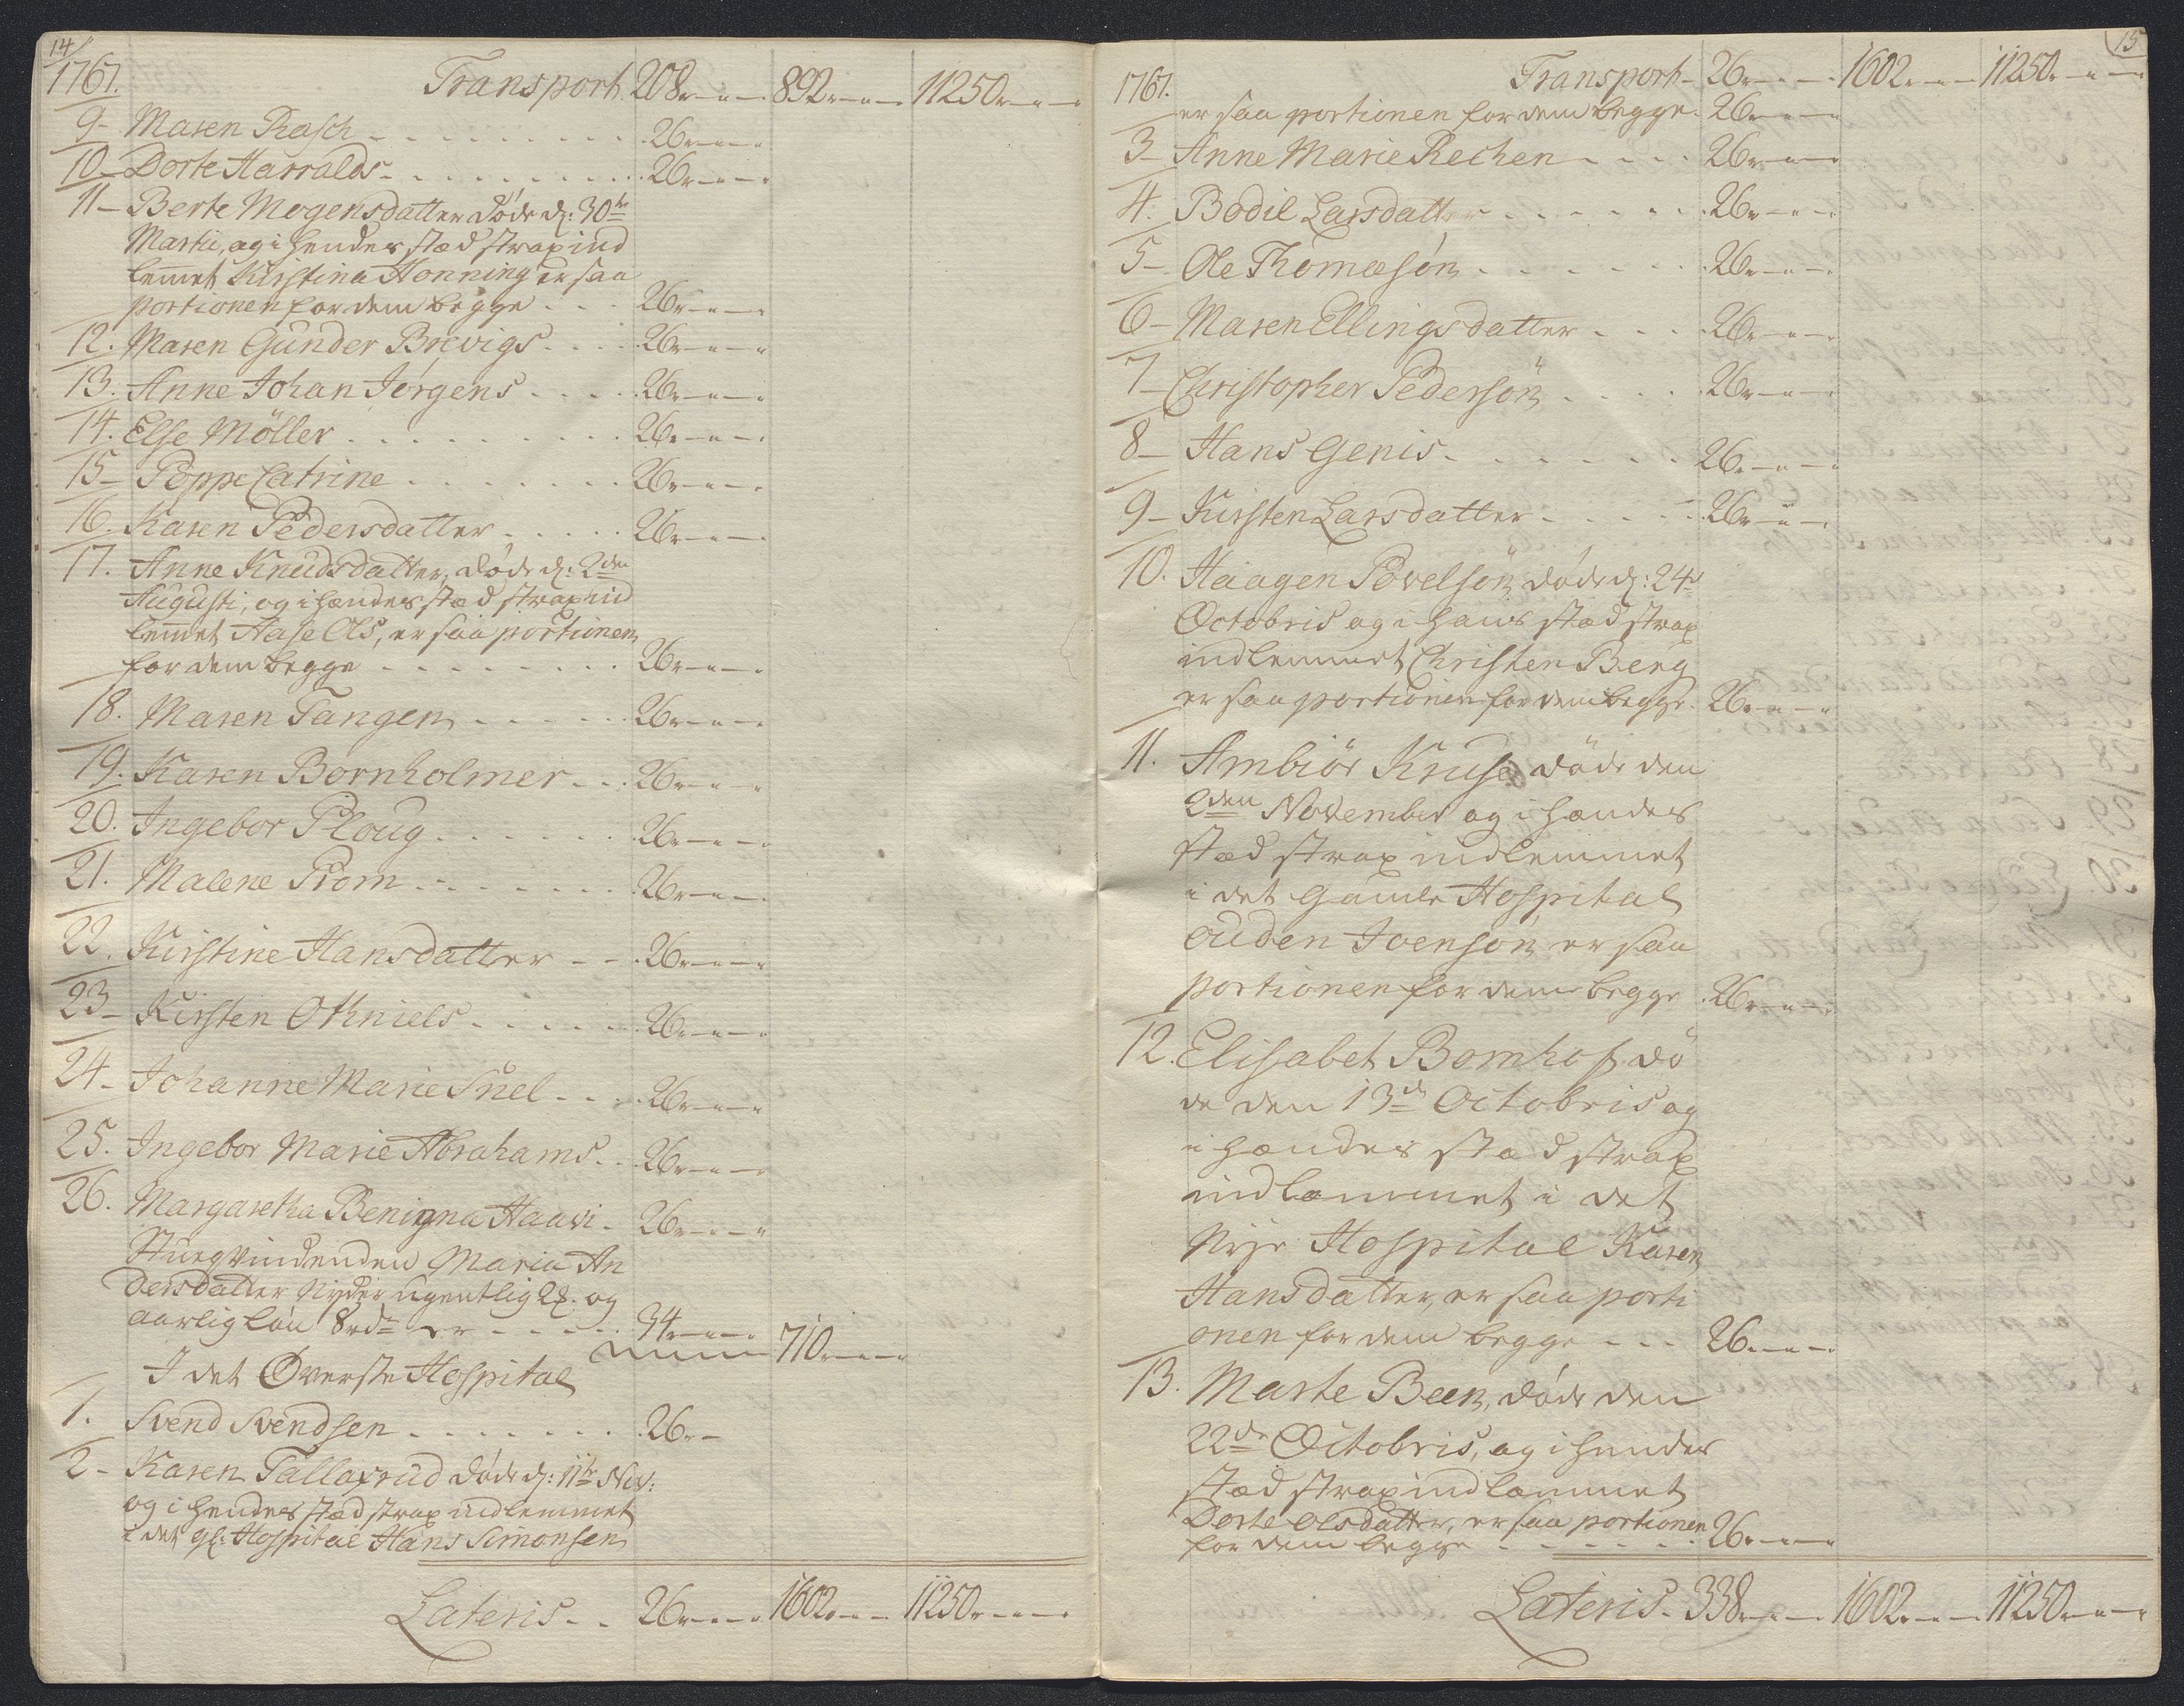 14
1767.
Transport 208 „ - „ - 892 „ - „ - 11250 „ - „ -
9- Maren Rasch - - - 26 „ - „ -
10- Dorte Harralds - - - 26 „ - „ -
11- Berte Mogensdatter døde d: 30te
Martii, og i hendes stæd strax ind
lem̄et Kirstina Honning er saa
portionen for dem begge - - - 26 „ - „ -
12. Maren Gunder Brevigs - - - 26 „ - „ -
13. Anne Johan Jørgens - - - 26 „ - „ -
14. Else Möller - - - 26 „ - „ -
15- Poppe Catrine - - - 26 „ - „ -
16. Karen Pedersdatter - - - 26 „ - „ -
17. Anne Knudsdatter, døde d: 2den
Augusti, og i hendes stæd strax ind
lem̄et Aase Ols, er saa portionen
for dem begge - - - 26 „ - „ -
18. Maren Tangen - - - 26 „ - „ -
19. Karen Bornholmer - - - 26 „ - „ -
20. Ingebor Ploug - - - 26 „ - „ -
21. Malene Prom - - - 26 „ - „ -
22. Kirstine Hansdatter - - - 26 „ - „ -
23- Kirsten Othniels - - - 26 „ - „ -
24- Johanne Marie Snel - - - 26 „ - „ -
25. Ingebor Marie Abrahams - - - 26 „ - „ -
26. Margaretha Benigna Haavi - 26 „ - „ -
Stueqvindenden Maria An
dersdatter Nyder ugentlig 2 og
aarlig løn 8 rdr er - - - 34 „ - „ -
710 „ - „ -
I det Øverste Hospital
1. Svend Svendsen - - - 26 „ -
2- Karen Tallaxrud døde d: 11te Nov:
og i hendes stæd strax indlemmet
i det gl: Hospital Hans Simonsen
Lateris - - 26 „ - „ - 1602 „ - „ - 11250 „ - „ -
15
1767.
Transport - 26 „ - „ - 1602 „ - „ - 11250 „ - „ -
er saa portionen for dem begge. 26 „ - „ -
3- Anne Marie Rechen - - - 26 „ - „ -
4. Bodil Larsdatter - - - 26 „ - „ -
5- Ole Thomæsøn - - - 26 „ - „ -
6- Maren Ellingsdatter - - - 26 „ - „ -
7- Christopher Pedersön - - - 26 „ - „ -
8- Hans Genis - - - 26 „ - „ -
9- Kirsten Larsdatter - - - 26 „ - „ -
10. Haagen Povelsön døde d: 24de
Octobris og i hans stæd strax
indlemmet Christen Berg
er saa portionen for dem begge. 26 „ - „ -
11. Ambiör Kruse døde den
2den November og i hendes
stæd strax indlemmet
i det gamle Hospital
Ouden Joensön er saa
portionen for dem begge 26 „ - „ -
12. Elisabet Bomhof dø
de den 13de Octobris og
i hendes stæd strax
indlemmet i det
Nye Hospital Karen
Hansdatter, er saa porti
onen for dem begge - - - 26 „ - „ -
13. Marte Been, døde den
22de Octobris, og i hendes
stæd strax indlemmet
Dorte Olsdatter, er saa portionen
for dem begge - - - 26 „ - „ -
Lateris - 338 „ - „ - 1602 „ - „ - 11250 „ - „ -